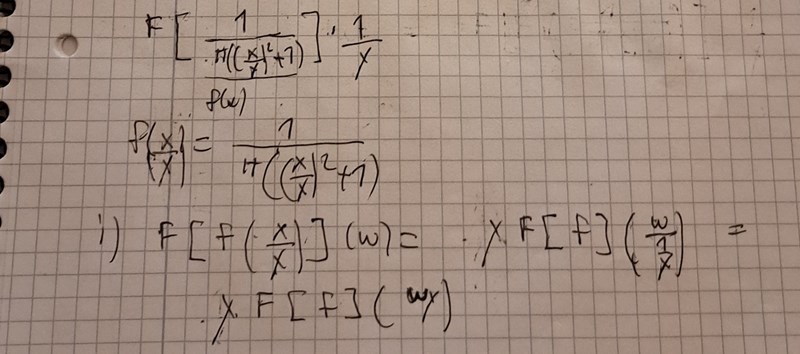 F[ 1 / π((x/γ)²+1) ] · 1/γ
f(x)
f(x/γ) = 1 / π((x/γ)²+1)
i) F[f(x/γ)](w) = γ F[f](w / 1/γ) =
γ F[f](wγ)